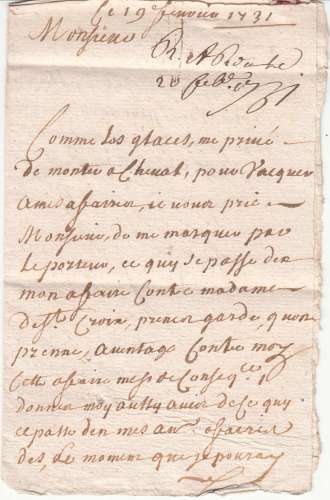 Le 19 fevrier 1731
Monsieur
R. A
20 feb. 1731
Comme les glaces, me prive
de monter a Cheval, pour vacquer
a mes affaires, ie vous prie
Monsieur, de me marquer par
le porteur, ce quy se passe den
mon affaire Contre madame
de St. Croix, prener garde, quon
prenne, aventage Contre moy
Cette affaire mest de Conseqce,
donner moy aussy avis de ce quy
ce passe den mes au. affaires
des, le moment que je pouray